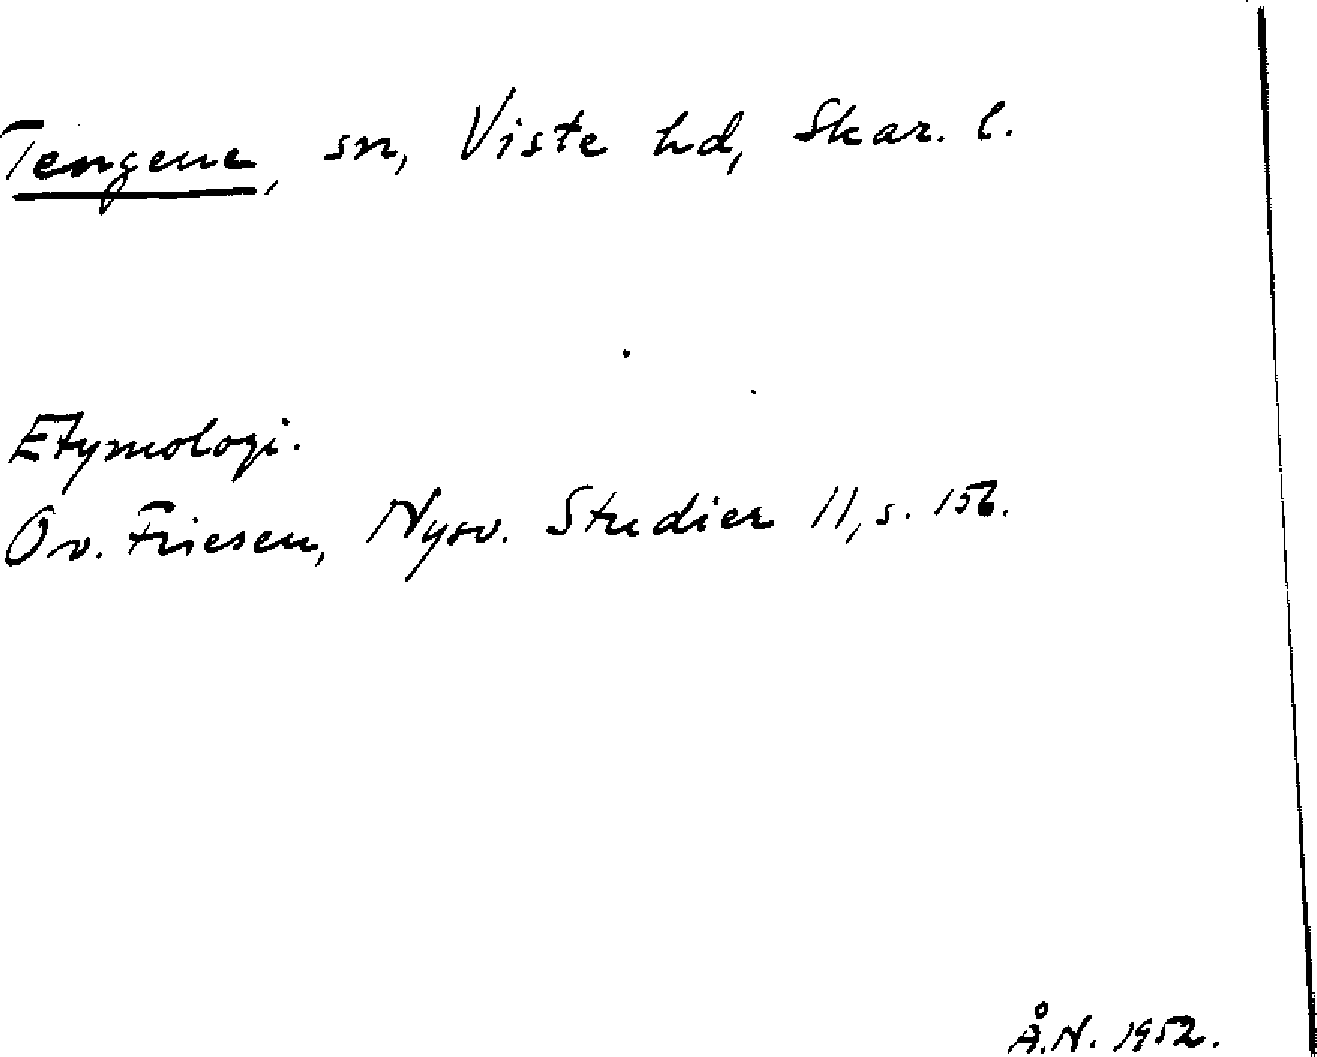 Tengene, sn, Viste hd, Skar. l.
Etymologi.
O v. Friesen, Nysv. Studier 11, s. 156.
Å.N. 1952.